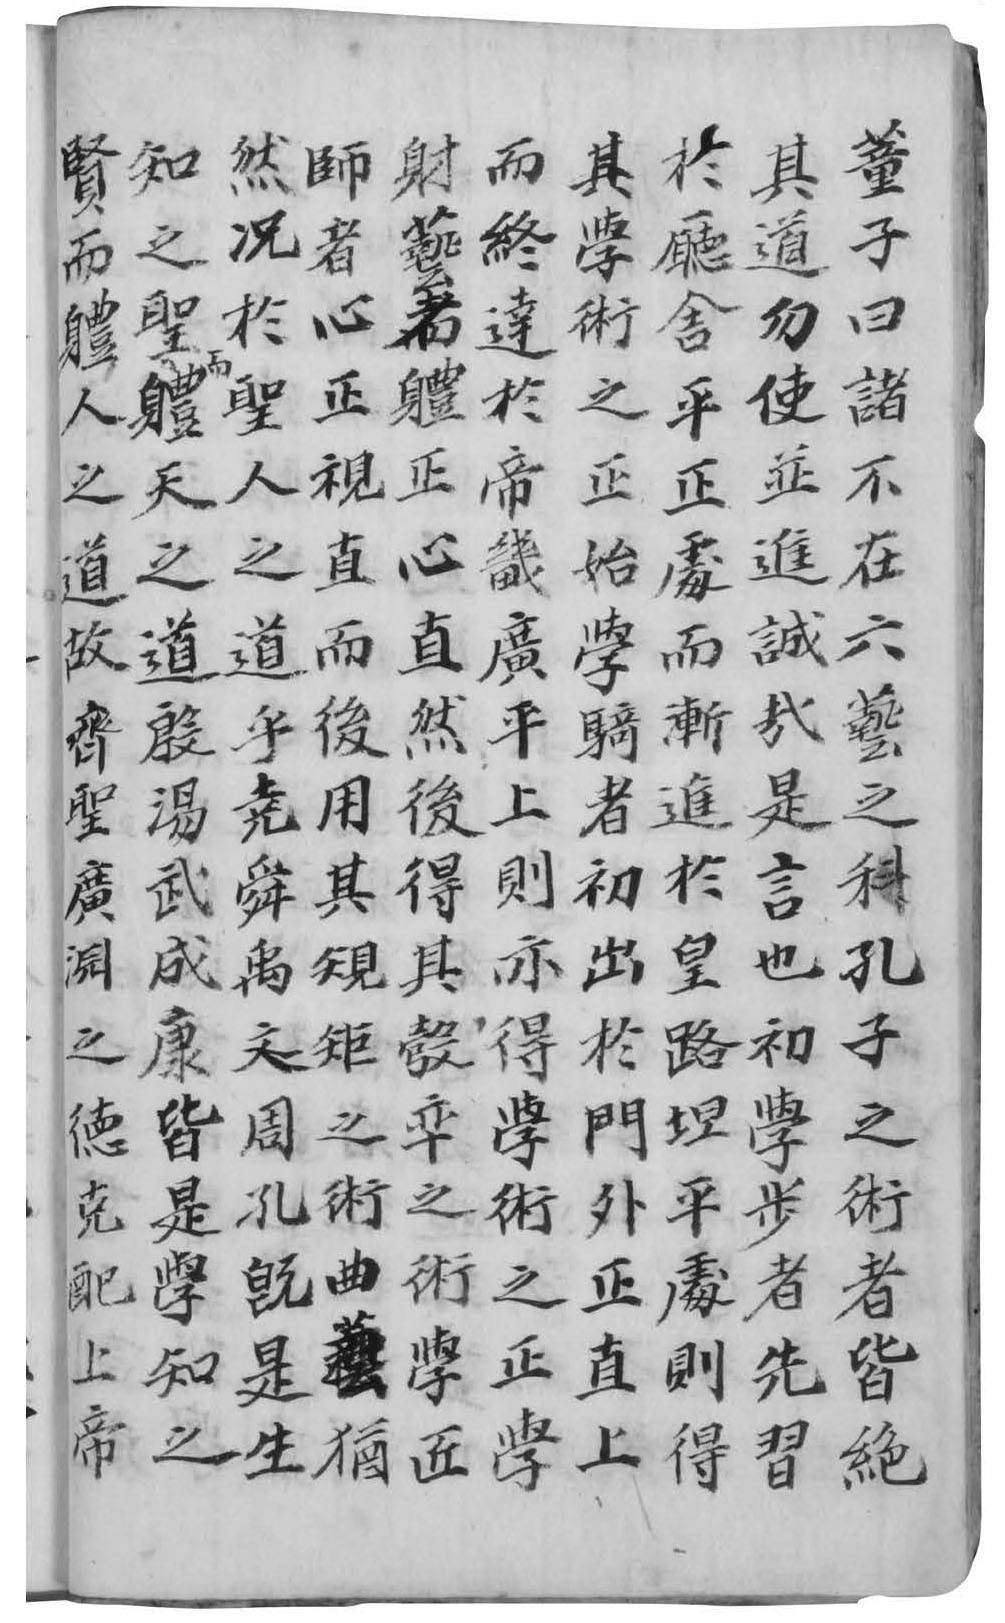 董子曰諸不在六藝之科孔子之術者皆絶
其道勿使並進誠哉是言也初學步者先習
於廳舍平正處而漸進於皇路坦平處則得
其學術之正始學騎者初出於門外正直上
而終達於帝畿廣平上則亦得學術之正學
射藝者軆正心直然後得其彀率之術學匠
師者心正視直而後用其規矩之術曲藝猶
然况於聖人之道乎堯舜禹文周孔旣是生
知之聖而軆天之道殷湯武成康皆是學知之
賢而軆人之道故齊聖廣淵之德克配上帝